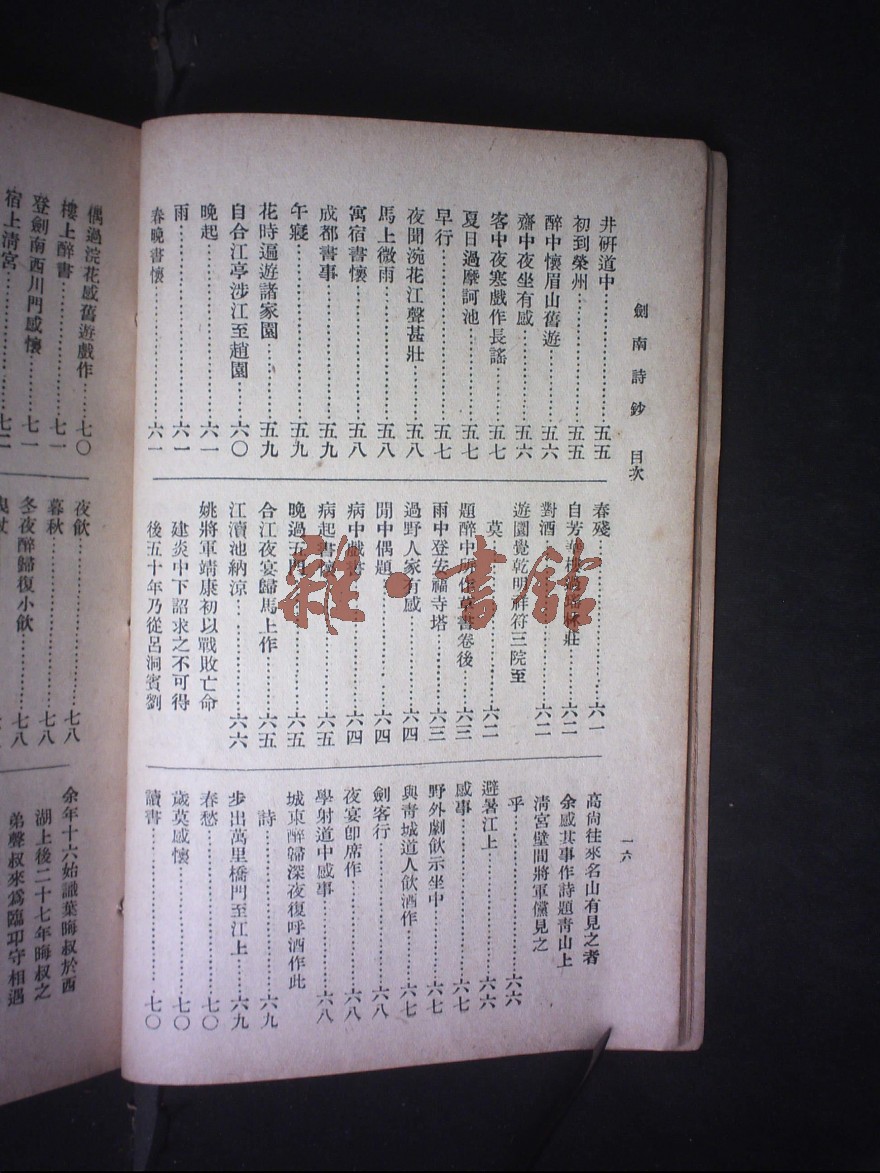 劍南詩鈔 目次
一六
井研道中……五五
初到榮州……五五
醉中懷眉山舊遊……五六
齋中夜坐有感……五六
客中夜寒戲作長謠……五七
夏日過摩訶池……五七
早行……五七
夜聞浣花江聲甚壯……五八
馬上微雨……五八
寓宿書懷……五八
成都書事……五九
午寢……五九
花時遍遊諸家園……五九
自合江亭涉江至趙園……六〇
晚起……六一
雨……六一
春晚書懷……六一
春殘……六一
自芳華樓 林莊……六二
對酒……六二
遊圜覺乾明祥符三院至
莫……六二
題醉中所作草書卷後……六三
雨中登安福寺塔……六三
過野人家有感……六四
閒中偶題……六四
病中戲書……六四
病起書懷……六五
晚過五門……六五
合江夜宴歸馬上作……六五
江瀆池納涼……六六
姚將軍靖康初以戰敗亡命
建炎中下詔求之不可得
後五十年乃從呂洞賓劉
高尙往來名山有見之者
余感其事作詩題靑山上
淸宮壁間將軍儻見之
乎……六六
避暑江上……六六
感事……六七
野外劇飲示坐中……六七
與靑城道人飲酒作……六七
劍客行……六八
夜宴卽席作……六八
學射道中感事……六八
城東醉歸深夜復呼酒作此
詩……六九
步出萬里橋門至江上……六九
春愁……七〇
歲莫感懷……七〇
讀書……七〇
偶過浣花感舊遊戲作……七〇
樓上醉書……七一
登劍南西川門感懷……七一
宿上淸宮……七二
夜飲……七八
暮秋……七八
冬夜醉歸復小飲……七八
余年十六始識葉晦叔於西
湖上後二十七年晦叔之
弟聲叔來爲臨卭守相遇
雜·書館